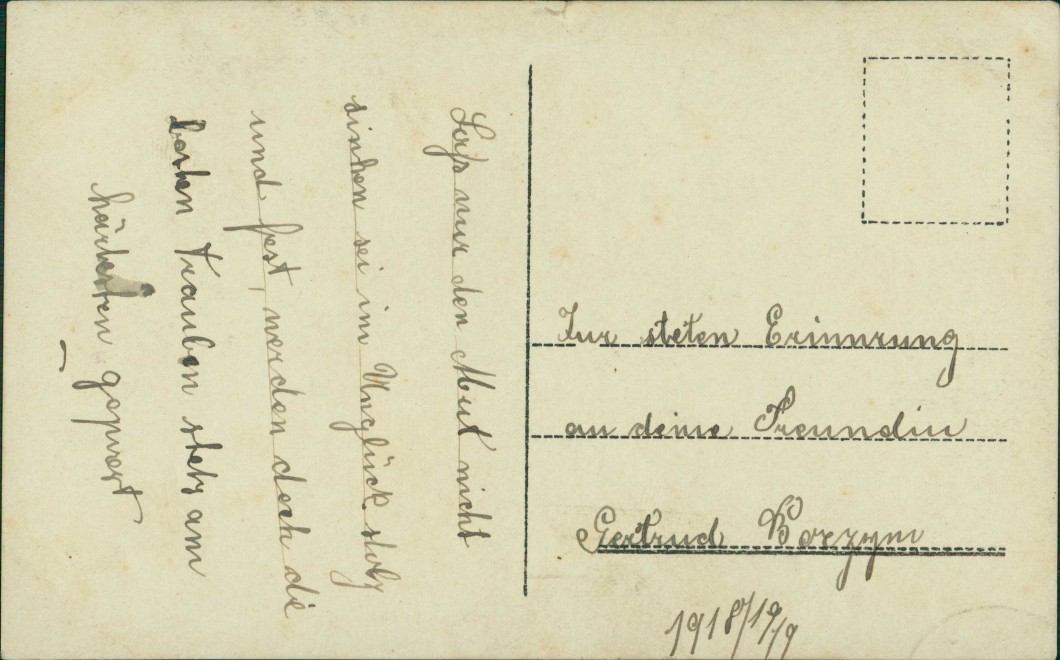 Laß nur den Mut nicht
sinken sei im Unglück stolz
und fest, werden doch die
besten Trauben stets am
härtesten gepresst
Zur steten Erinnrung
an deine Freundin
Gertrud Borzym
1918/19/9